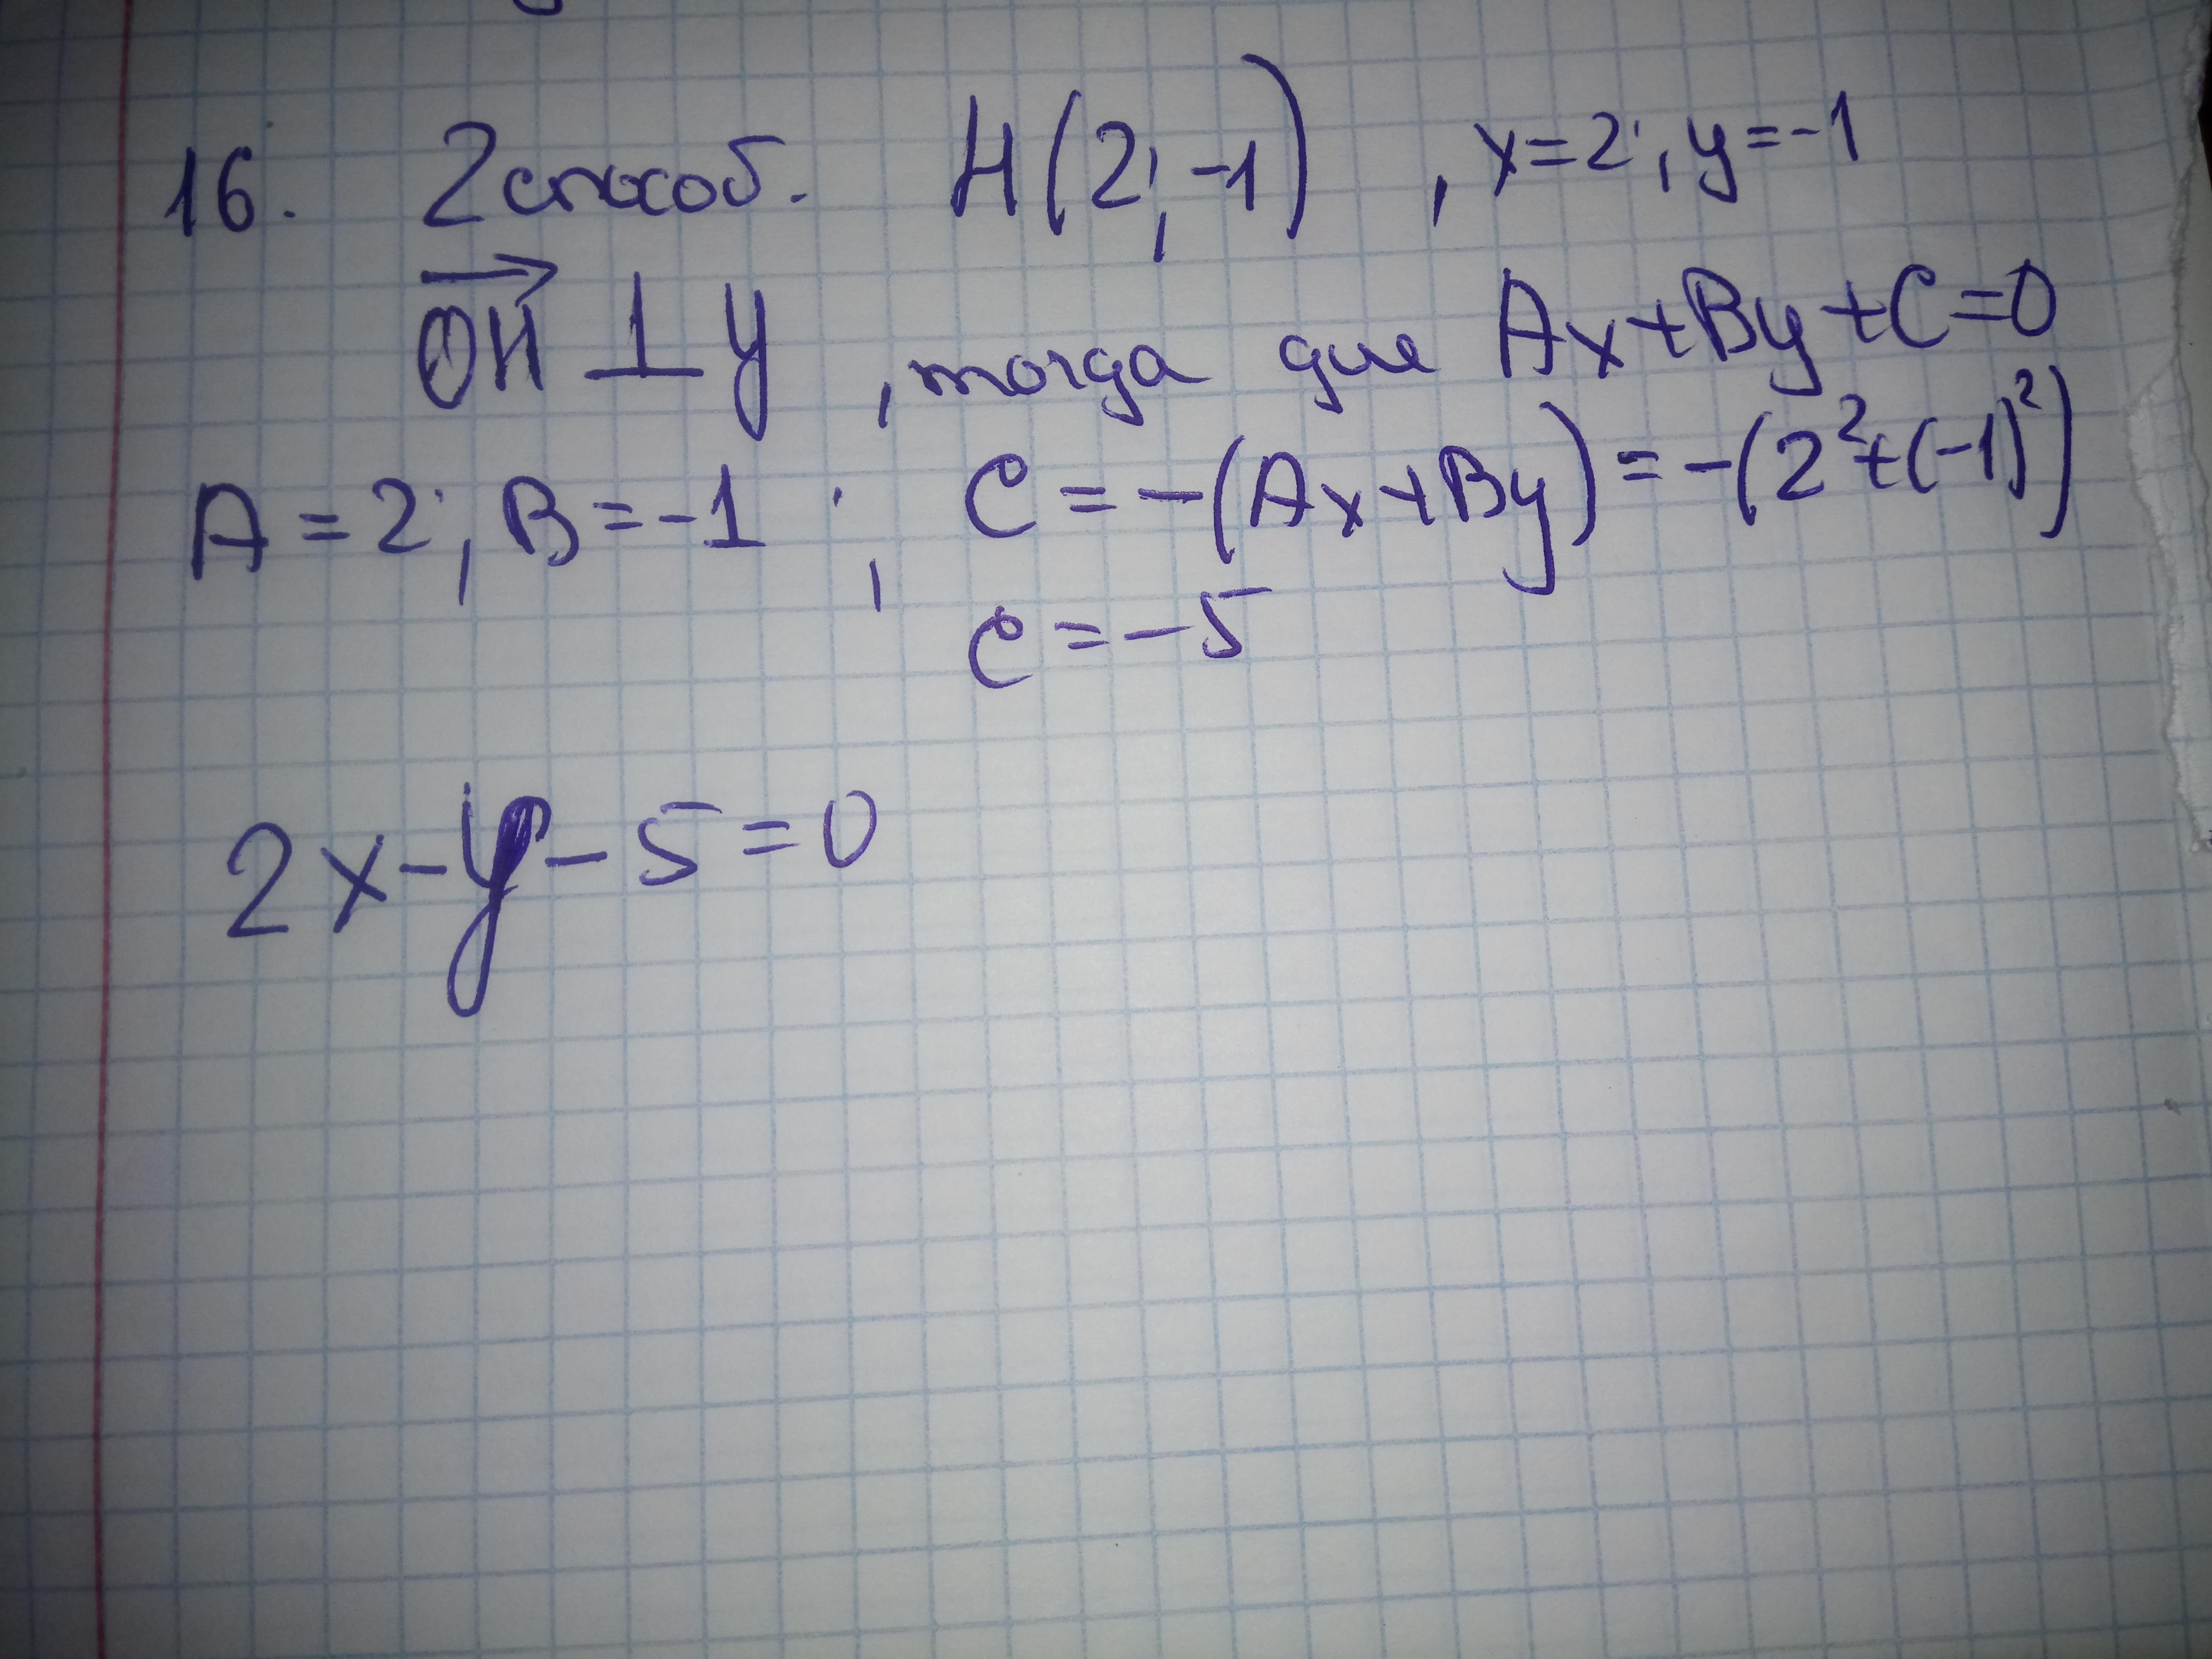 16. 2 способ. H(2; -1) , x=2; y=-1
OH ⊥ y , тогда для Ax+By+C=0
A=2; B=-1 ; C=-(Ax+By)=-(2²+(-1)²)
C=-5
2x-y-5=0